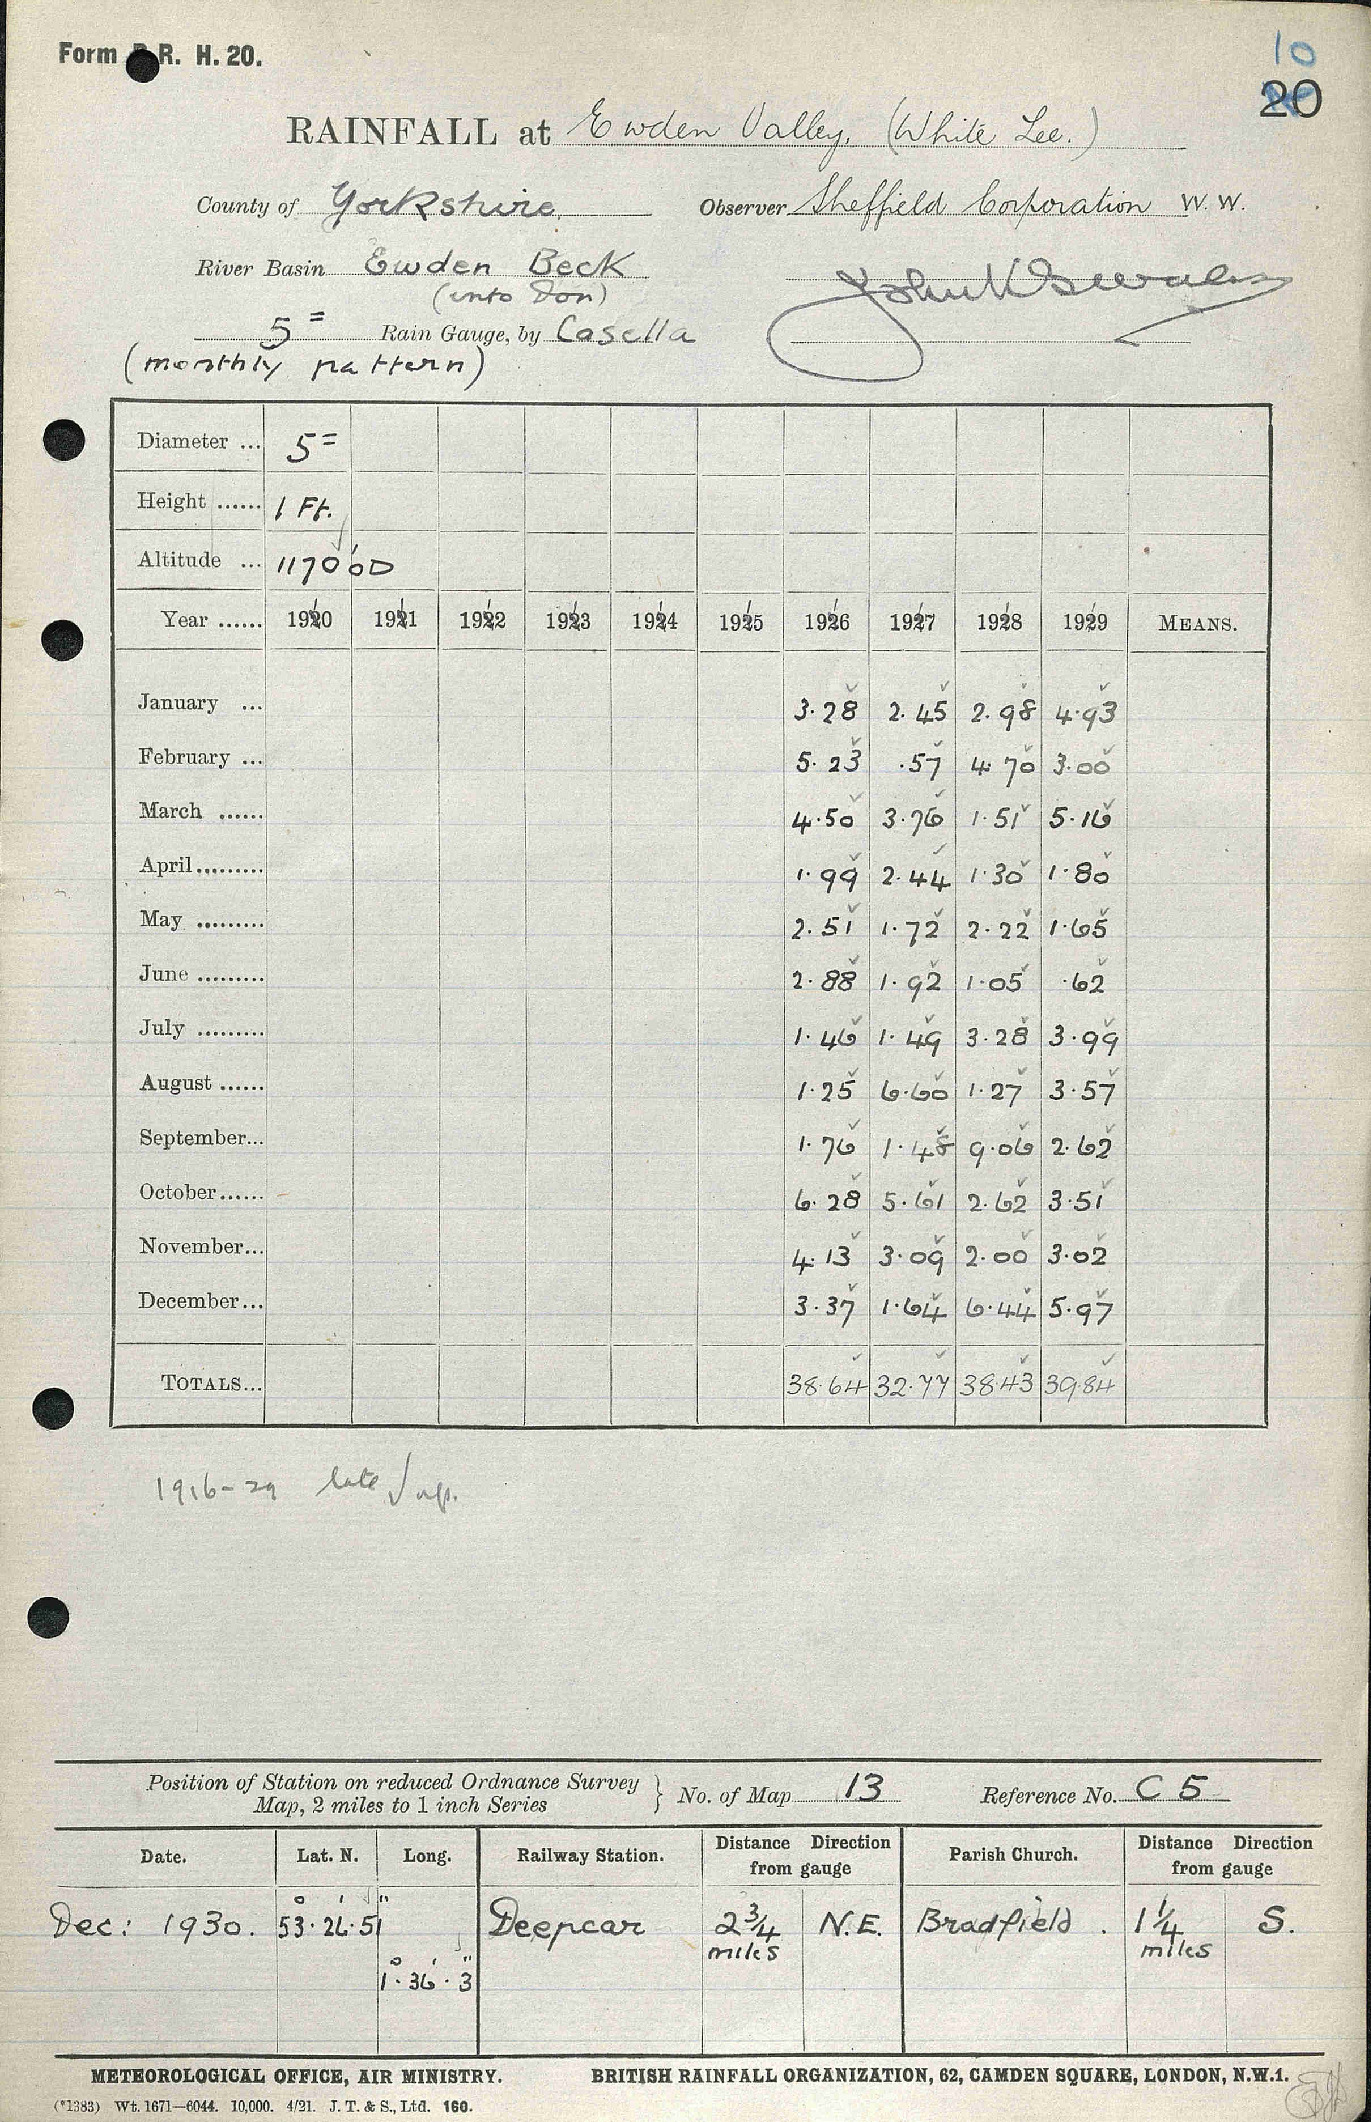 Form B.R. H. 20.
10
20
RAINFALL at Ewden Valley, (White Lee.)
County of Yorkshire. Observer Sheffield Corporation W. W.
River Basin Ewden Beck
(into Don)
5" Rain Gauge, by Casella
(monthly pattern)
Diameter ... 5"
Height ...... 1 Ft.
Altitude ... 1170' OD
Year ...... 1910 1911 1912 1913 1914 1915 1916 1917 1918 1919 MEANS.
January ... 3.28 2.45 2.98 4.93
February ... 5.23 .57 4.70 3.00
March ...... 4.50 3.76 1.51 5.16
April......... 1.99 2.44 1.30 1.80
May ......... 2.51 1.72 2.22 1.65
June ......... 2.88 1.92 1.05 .62
July ......... 1.46 1.49 3.28 3.99
August ...... 1.25 6.60 1.27 3.57
September... 1.76 1.48 9.06 2.62
October...... 6.28 5.61 2.62 3.51
November... 4.13 3.09 2.00 3.02
December... 3.37 1.64 6.44 5.97
TOTALS... 38.64 32.77 38.43 39.84
1916-29 late
Position of Station on reduced Ordnance Survey
Map, 2 miles to 1 inch Series } No. of Map 13 Reference No. C 5
Date. Lat. N. Long. Railway Station. Distance Direction from gauge Parish Church. Distance Direction from gauge
Dec: 1930. 53° 26' 51" Deepcar 2¾ miles N.E. Bradfield . 1¼ miles S.
1° 36' 3"
METEOROLOGICAL OFFICE, AIR MINISTRY. BRITISH RAINFALL ORGANIZATION, 62, CAMDEN SQUARE, LONDON, N.W.1.
(*1383) Wt. 1671—6044. 10,000. 4/21. J. T. & S., Ltd. 160.